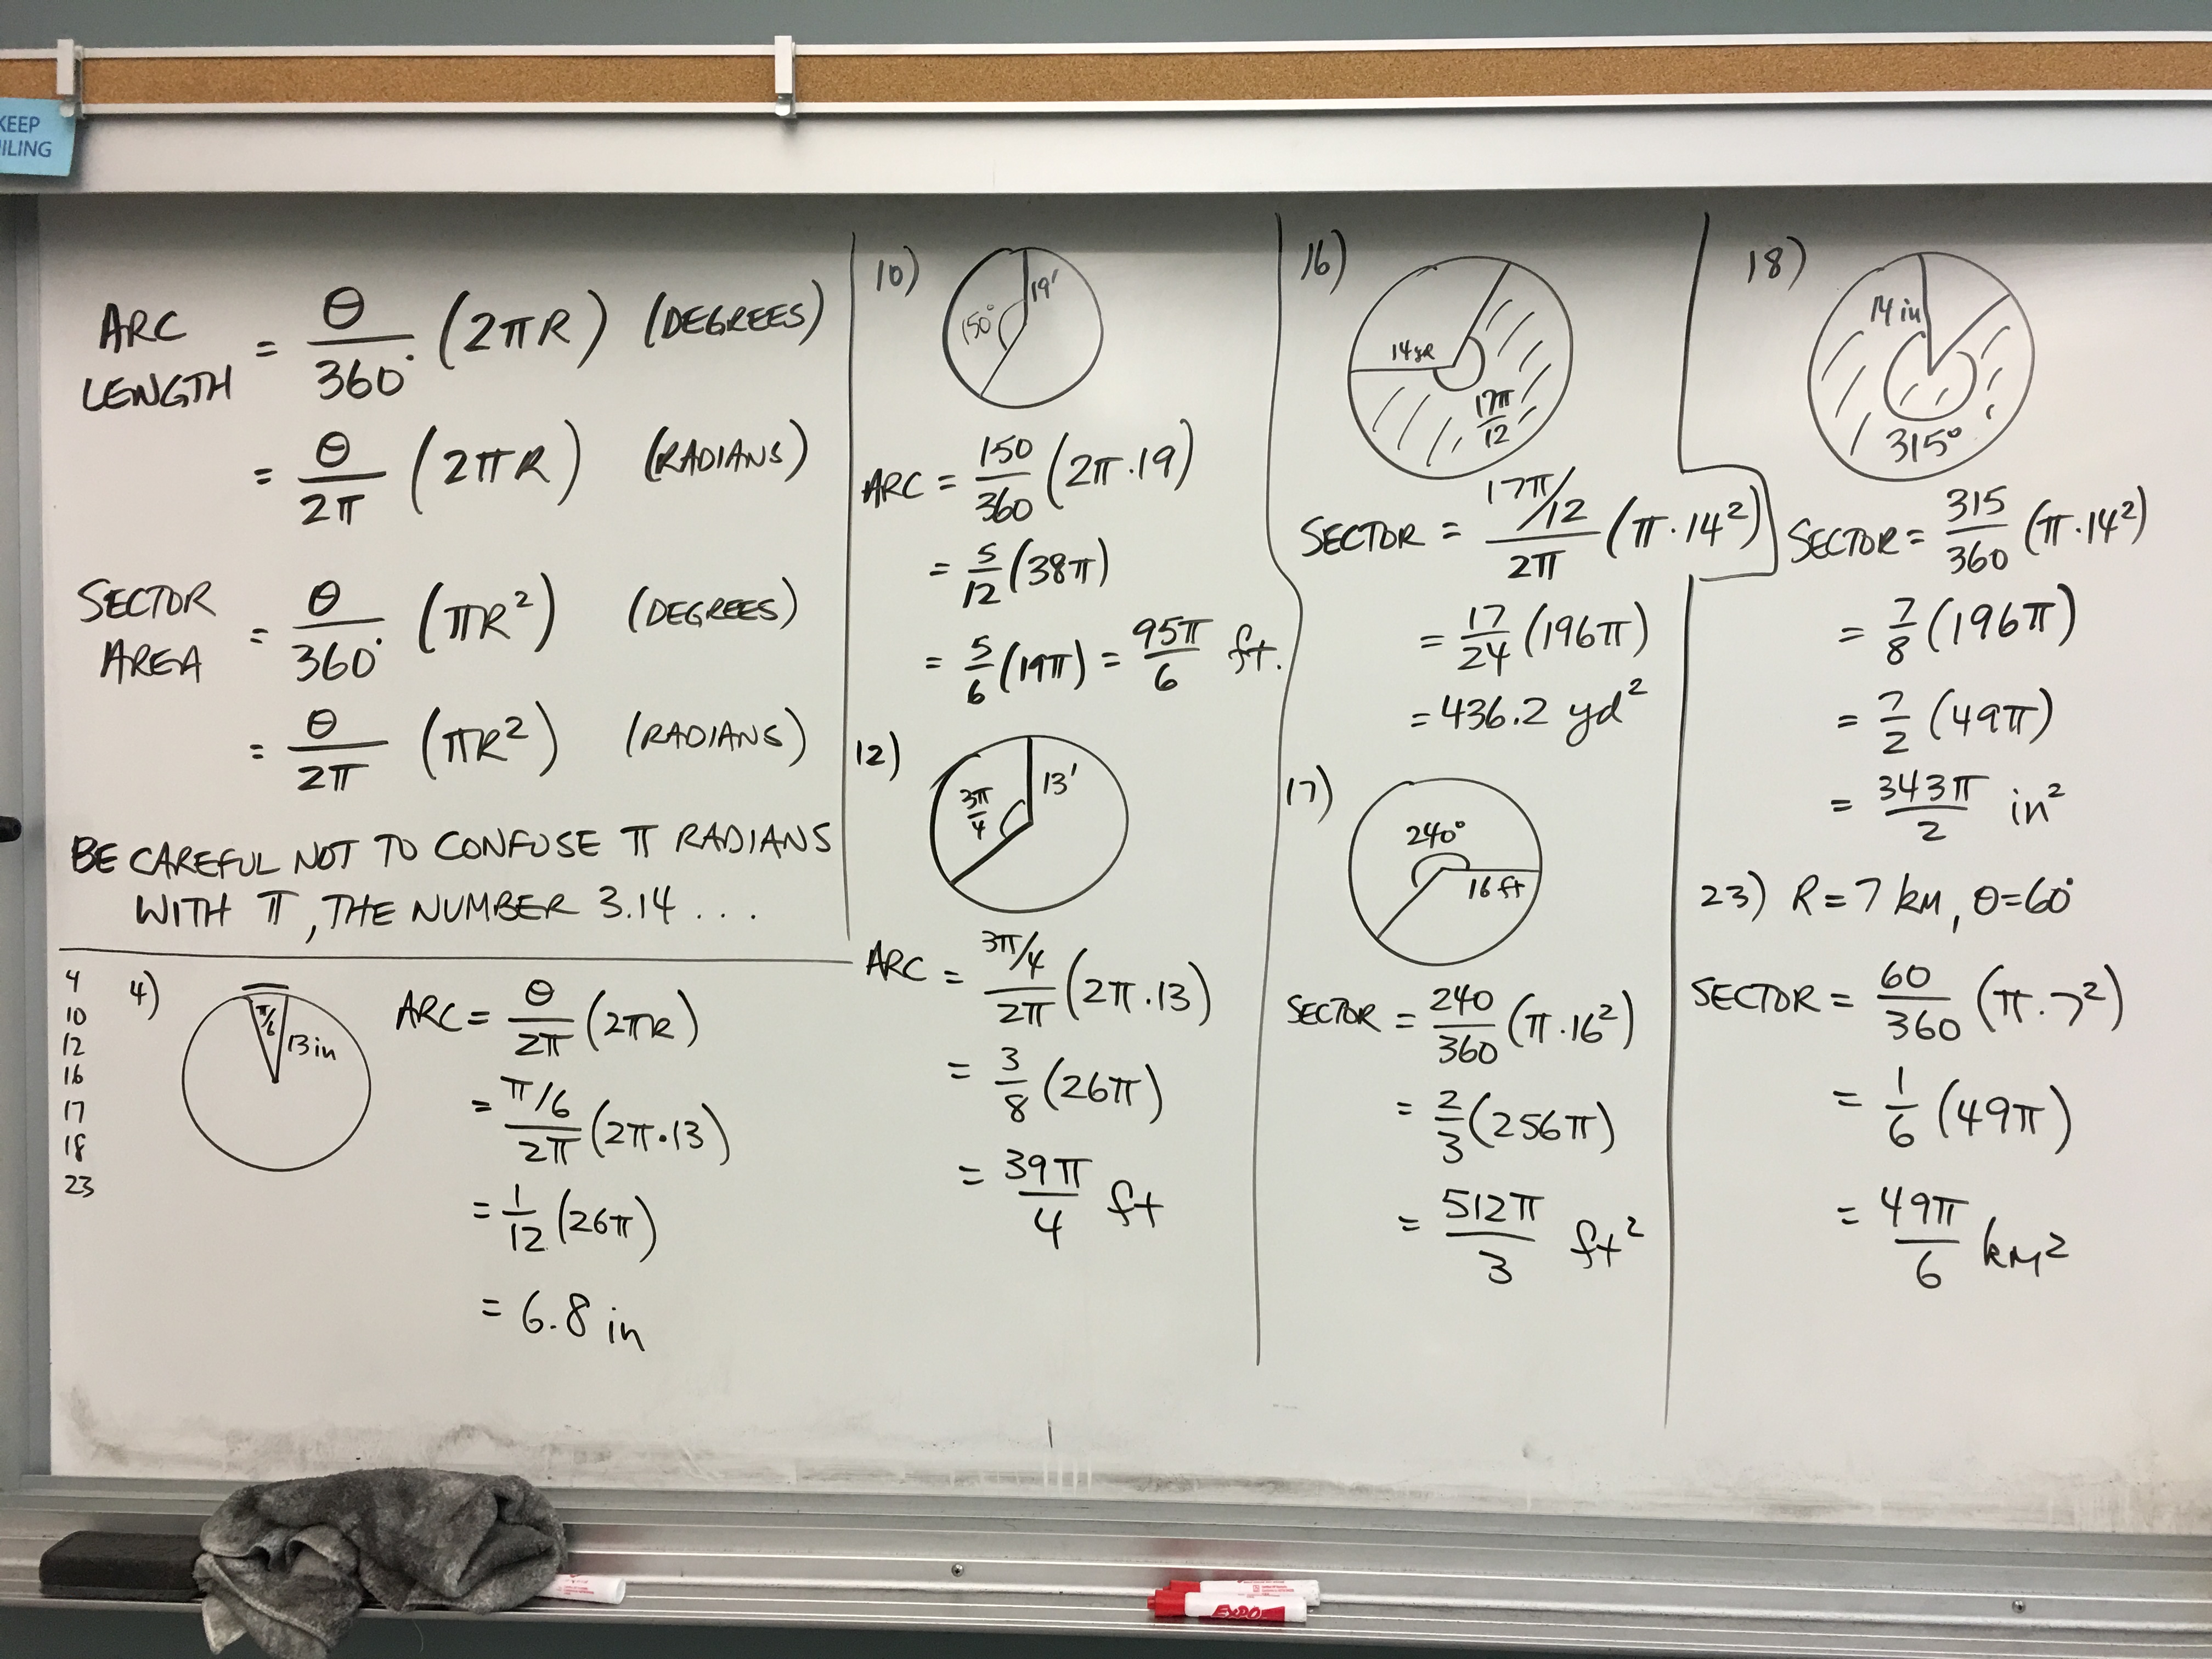 KEEP
ILING
ARC LENGTH = θ/360° (2πR) (DEGREES)
= θ/2π (2πR) (RADIANS)
SECTOR AREA = θ/360° (πR²) (DEGREES)
= θ/2π (πR²) (RADIANS)
BE CAREFUL NOT TO CONFUSE π RADIANS
WITH π, THE NUMBER 3.14 . . .
4
10
12
16
17
18
23
4)
π/6
13 in
ARC = θ/2π (2πR)
= π/6/2π (2π·13)
= 1/12 (26π)
= 6.8 in
10)
19'
150°
ARC = 150/360 (2π·19)
= 5/12 (38π)
= 5/6 (19π) = 95π/6 ft.
12)
3π/4
13'
ARC = 3π/4/2π (2π·13)
= 3/8 (26π)
= 39π/4 ft
16)
14 yd
17π/12
SECTOR = 17π/12/2π (π·14²)
= 17/24 (196π)
= 436.2 yd²
17)
240°
16 ft
SECTOR = 240/360 (π·16²)
= 2/3 (256π)
= 512π/3 ft²
18)
14 in
315°
SECTOR = 315/360 (π·14²)
= 7/8 (196π)
= 7/2 (49π)
= 343π/2 in²
23) R = 7 km, θ = 60°
SECTOR = 60/360 (π·7²)
= 1/6 (49π)
= 49π/6 km²
EXPO